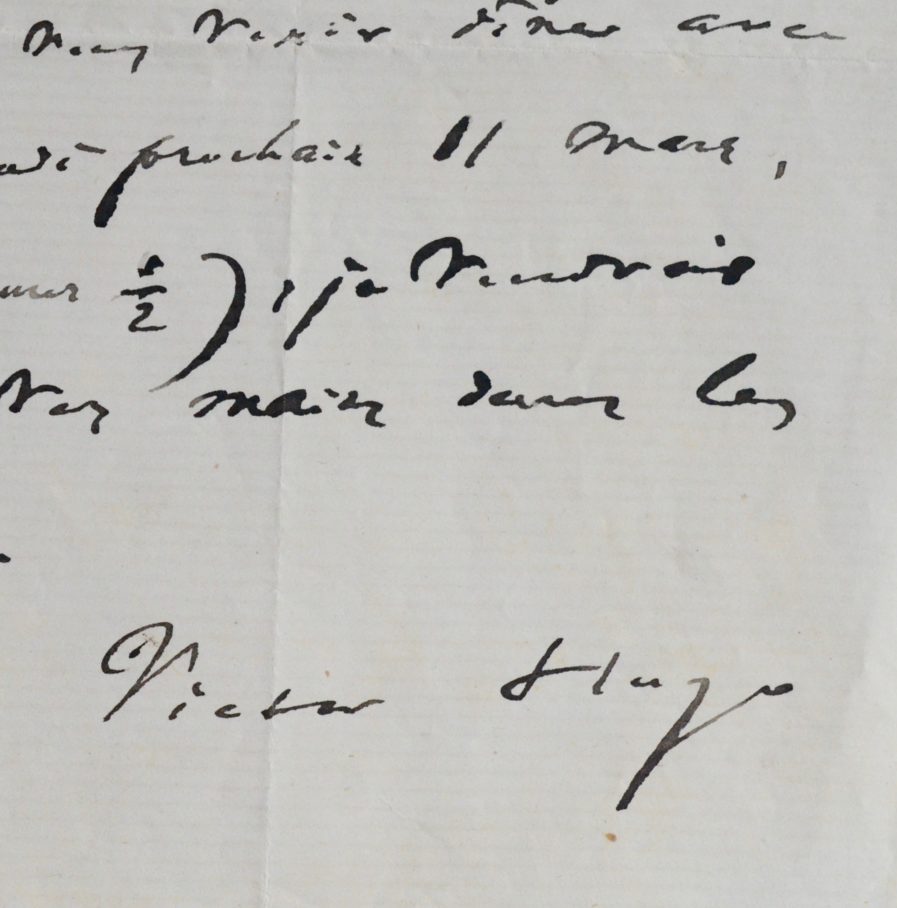 venir dîner avec
prochain 11 mars,
½) ; je voudrais
vos mains dans les
Victor Hugo